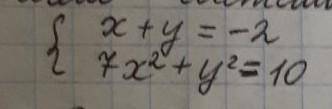 x + y = -2
7x² + y² = 10